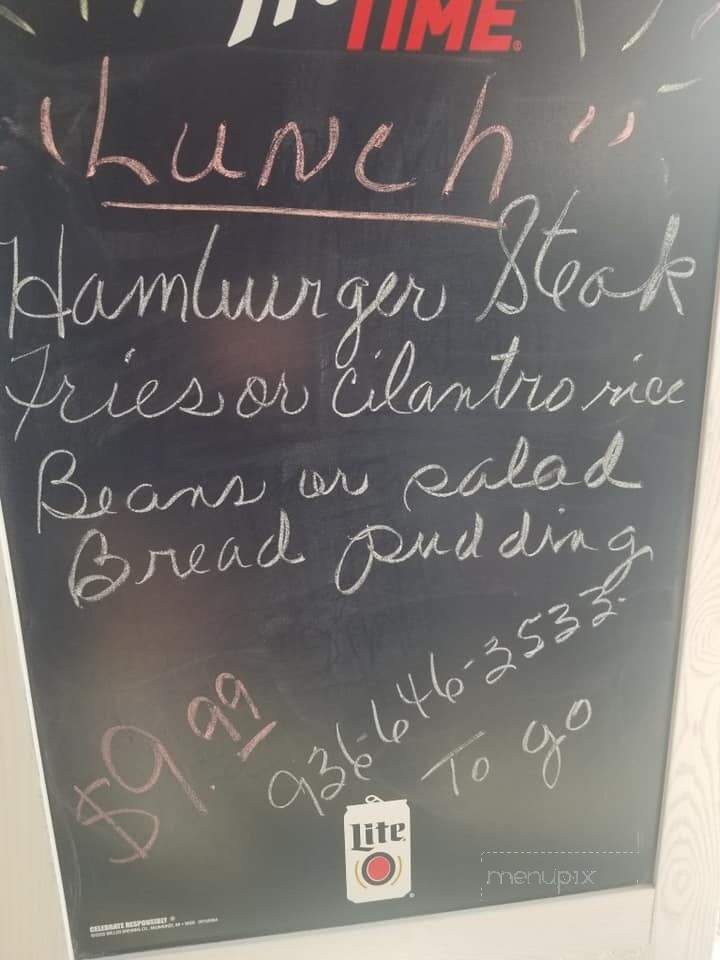 TIME
"Lunch"
Hamburger Steak
Fries or Cilantro rice
Beans or salad
Bread pudding
$9.99
936-646-3533
To go
Lite
menupix
CELEBRATE RESPONSIBLY